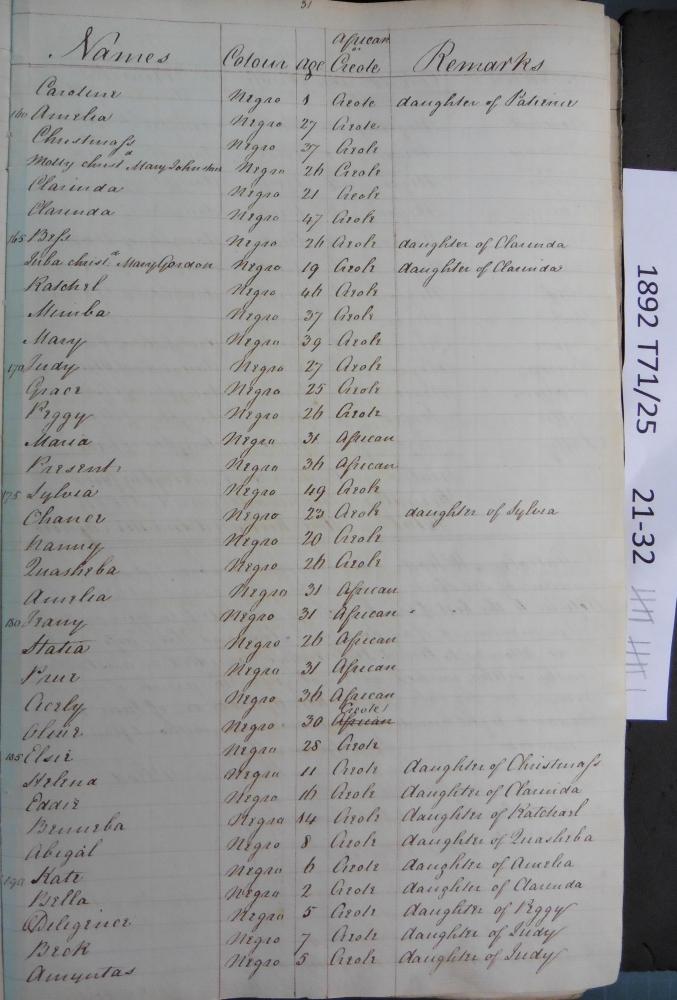 31
Names Colour Age African or Creole Remarks
Caroline Negro 1 Creole daughter of Patience
160 Amelia Negro 27 Creole
Christmass Negro 37 Creole
Molly christd Mary Johnston Negro 26 Creole
Clarinda Negro 21 Creole
Clarinda Negro 47 Creole
165 Bess Negro 26 Creole daughter of Clarinda
Juba christd Mary Gordon Negro 19 Creole daughter of Clarinda
Katchel Negro 46 Creole
Mimba Negro 37 Creole
Mary Negro 39 Creole
170 Judy Negro 27 Creole
Grace Negro 25 Creole
Peggy Negro 26 Creole
Maria Negro 31 African
Present Negro 36 African
175 Sylvia Negro 49 Creole
Chance Negro 23 Creole daughter of Sylvia
Nanny Negro 20 Creole
Quasheba Negro 26 Creole
Amelia Negro 31 African
180 Negro 31 African
Statia Negro 26 African
Prue Negro 31 African
Cicely Negro 36 African
Olive Negro 30 Creole African
185 Elsie Negro 28 Creole
Helena Negro 11 Creole daughter of Christmass
Eddie Negro 16 Creole daughter of Clarinda
Benneba Negro 14 Creole daughter of Katcharl
Abigal Negro 8 Creole daughter of Quasheba
190 Kate Negro 6 Creole daughter of Amelia
Bella Negro 2 Creole daughter of Clarinda
Diligence Negro 5 Creole daughter of Peggy
Beck Negro 7 Creole daughter of Judy
Amyntas Negro 5 Creole daughter of Judy
1892 T71/25 21-32